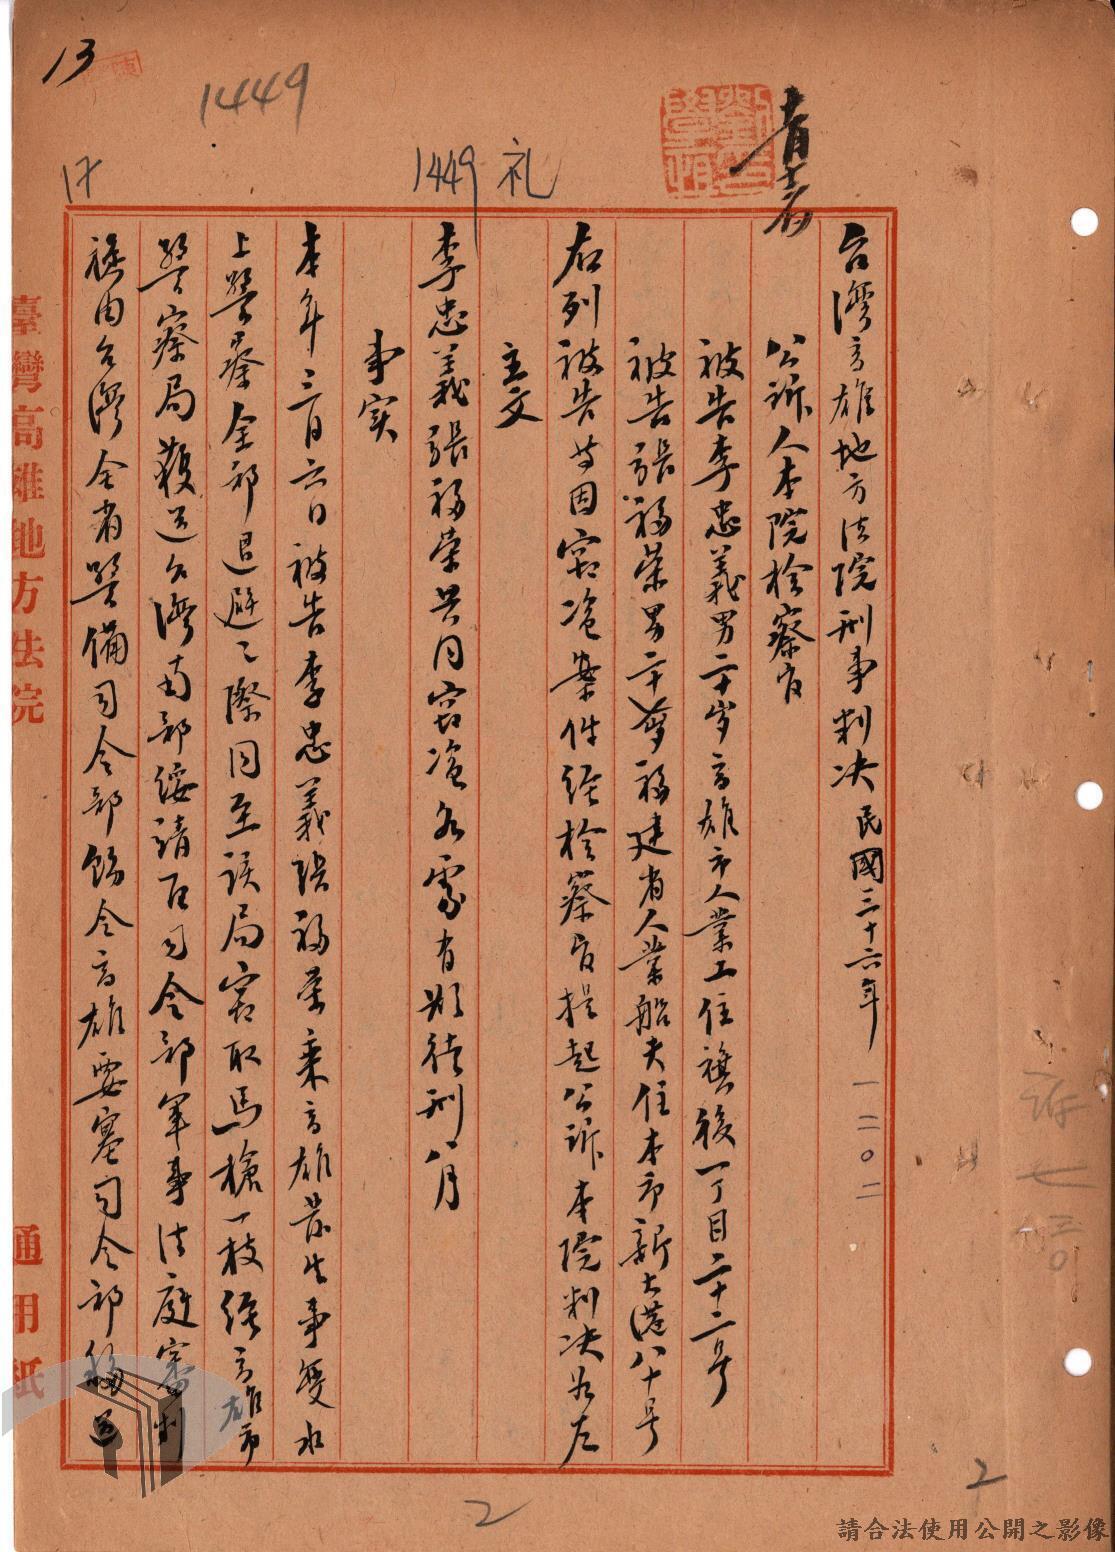 13
1449
1449 礼
台灣高雄地方法院刑事判决 民國三十六年
一二〇二
公訴人本院檢察官
被告李忠義男二十岁高雄市人業工住旗後一丁目二十二号
被告張福榮男二十 福建省人業船夫住本市新大港八十号
右列被告等因竊盗案件经檢察官提起公訴本院判决如左
主文
李忠義張福榮共同竊盗各處有期徒刑八月
事实
本年三月六日被告李忠義張福榮乘高雄發生事变水
上警察全部退避之際同至該局竊取馬槍一枝经高雄市
警察局獲送台灣南部绥靖区司令部軍事法庭審判
旋由台灣全省警備司令部飭令高雄要塞司令部移送
臺灣高雄地方法院
通用紙
2
2
請合法使用公開之影像